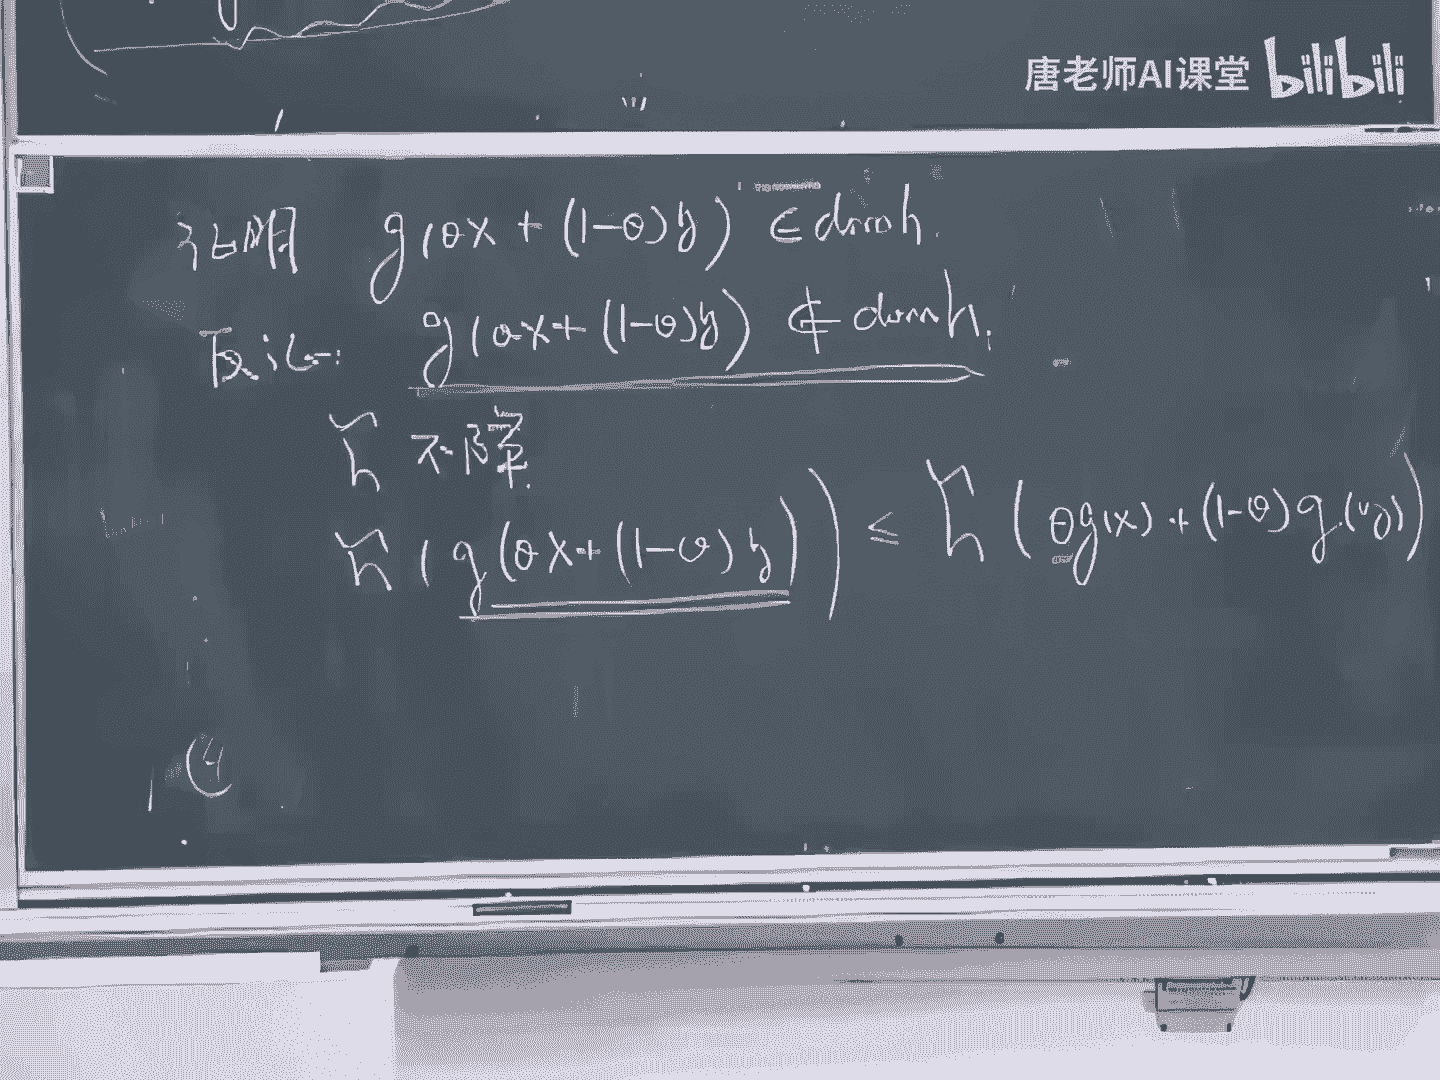 唐老师AI课堂 bilibili
证明 g(θx + (1-θ)y) ∈ dom h.
反证: g(θx + (1-θ)y) ∉ dom h.
h̃ 不降
h̃(g(θx + (1-θ)y)) ≤ h̃(θg(x) + (1-θ)g(y))